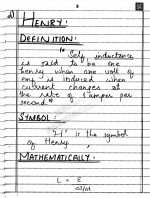 2)
HENRY:
DEFINITION:
"Self inductance
is said to be one
henry when one volt of
emf is induced when
current changes at
the rate of 1 amper per
second"
SYMBOL:
"H" is the symbol
of Henry.
MATHEMATICALLY:
L = E
ΔI/Δt